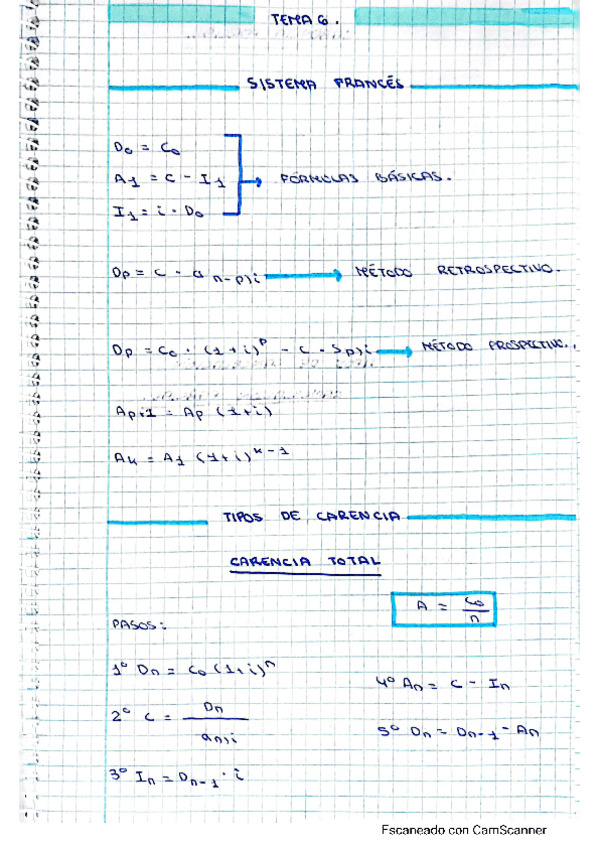 TEMA 6.
SISTEMA FRANCÉS
D₀ = C₀
A₁ = C - I₁ → FÓRMULAS BÁSICAS.
I₁ = i · D₀
Dp = C · a n-p⌉i → MÉTODO RETROSPECTIVO.
Dp = C₀ · (1+i)^p - C · S p⌉i → MÉTODO PROSPECTIVO.
Ap+1 = Ap (1+i)
Ak = A₁ (1+i)^k-1
TIPOS DE CARENCIA
CARENCIA TOTAL
A = C₀/n
PASOS:
1º Dn = C₀ (1+i)^n
2º C = Dn / a n⌉i
3º In = Dn-1 · i
4º An = C - In
5º Dn = Dn-1 - An
Escaneado con CamScanner